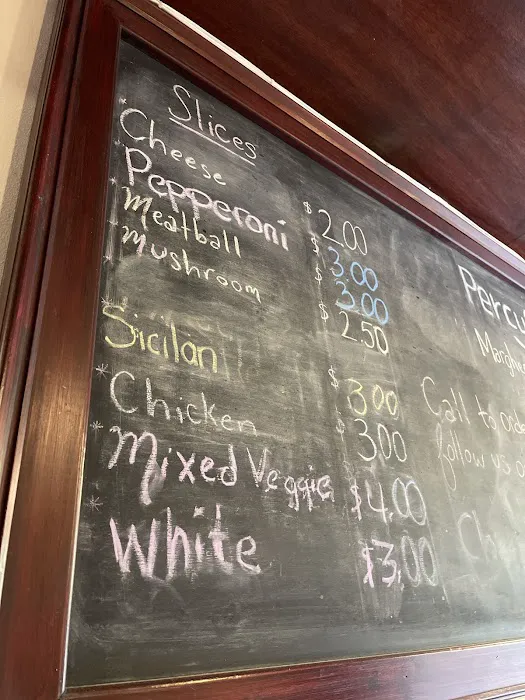 Slices
* Cheese $2.00
* Pepperoni $3.00
* Meatball $3.00
* Mushroom $2.50
* Sicilan $3.00
* Chicken $3.00
* Mixed Veggie $4.00
* White $3.00
Call to
follow us